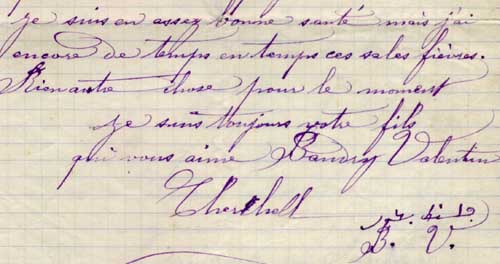 je suis en assez bonne santé mais j'ai
encore de temps en temps ces sales fièvres.
Rien autre chose pour le moment
je suis toujours votre fils
qui vous aime Baudry Valentin
Cherchell
B. V.